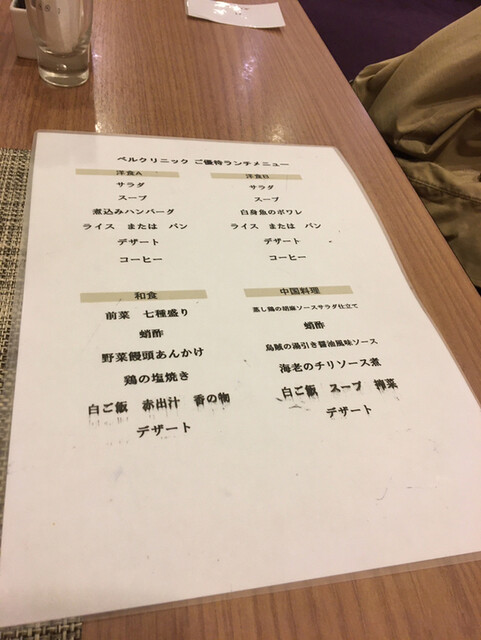 ベルクリニック ご優待ランチメニュー
洋食A
サラダ
スープ
煮込みハンバーグ
ライス または パン
デザート
コーヒー
洋食B
サラダ
スープ
白身魚のポワレ
ライス または パン
デザート
コーヒー
和食
前菜 七種盛り
蛸酢
野菜饅頭あんかけ
鶏の塩焼き
白ご飯 赤出汁 香の物
デザート
中国料理
蒸し鶏の胡麻ソースサラダ仕立て
蛸酢
烏賊の湯引き醤油風味ソース
海老のチリソース煮
白ご飯 スープ 搾菜
デザート